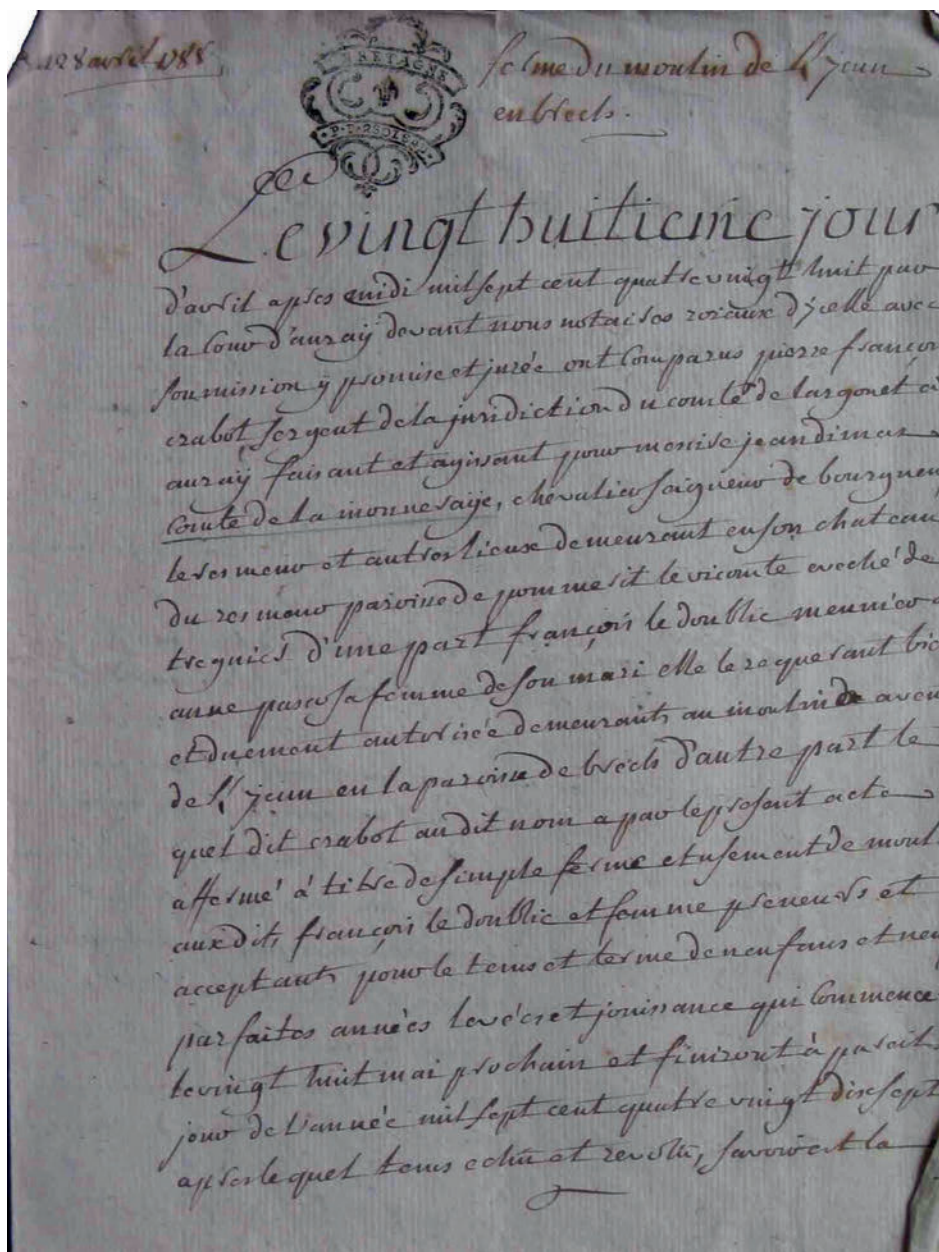 28 avril 1788
BRETAGNE
ferme du moulin de
en brech.
Le vingt huitieme jour
d'avril apres midi mil sept cent quatre vingt huit par
la Cour d'auraÿ devant nous notaires roiaux d'ycelle avec
soumission ÿ promise et jurée ont Comparus pierre françois
crabot sergent de la juridiction du comté de largouet
auraÿ faisant et agissant pour messire jean dimas
Comte de la monneraÿe, chevalier seigneur de
et autres lieux demeurant en son chateau
du paroisse de pommerit le vicomte eveché de
treguier d'une part françois le doublic meunier
anne sa femme de son mari elle le requerant
et duement autorisée demeurants au moulin
de en la paroisse de brech d'autre part le
quel dit crabot au dit nom a par le présent acte
affermé à titre de simple ferme et usement de
aux dits françois le doublic et femme preneurs et
acceptants pour le tems et terme de neuf ans et
parfaites années levées et jouissance qui Commence
le vingt huit mai prochain et finiront à pareil
jour de l'année mil sept cent quatre vingt dix sept
apres lequel tems echu et revolu, savoir est la